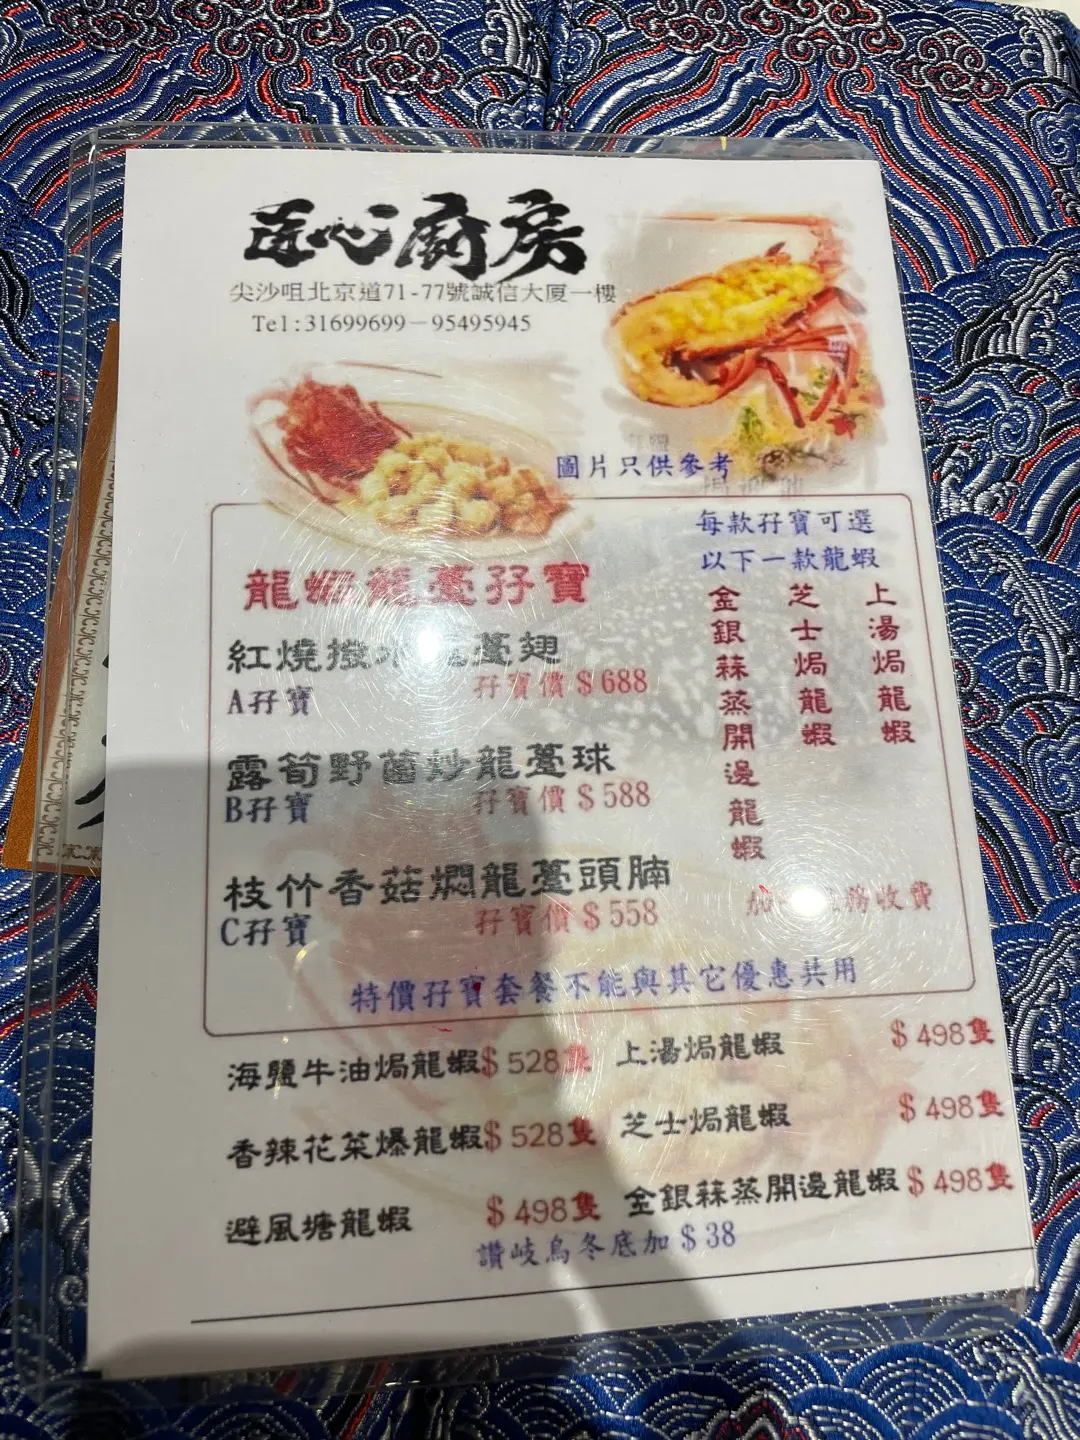 匠心廚房
尖沙咀北京道71-77號誠信大厦一樓
Tel:31699699－95495945
圖片只供參考
每款孖寶可選
以下一款龍蝦
龍蝦龍躉孖寶
金銀蒜蒸開邊龍蝦
芝士焗龍蝦
上湯焗龍蝦
紅燒撥水龍躉翅
A孖寶 孖寶價$688
露筍野菌炒龍躉球
B孖寶 孖寶價$588
枝竹香菇燜龍躉頭腩
C孖寶 孖寶價$558
收費
特價孖寶套餐不能與其它優惠共用
海鹽牛油焗龍蝦$528隻
上湯焗龍蝦 $498隻
香辣花菜爆龍蝦$528隻
芝士焗龍蝦 $498隻
避風塘龍蝦 $498隻
金銀蒜蒸開邊龍蝦$498隻
讚岐烏冬底加$38